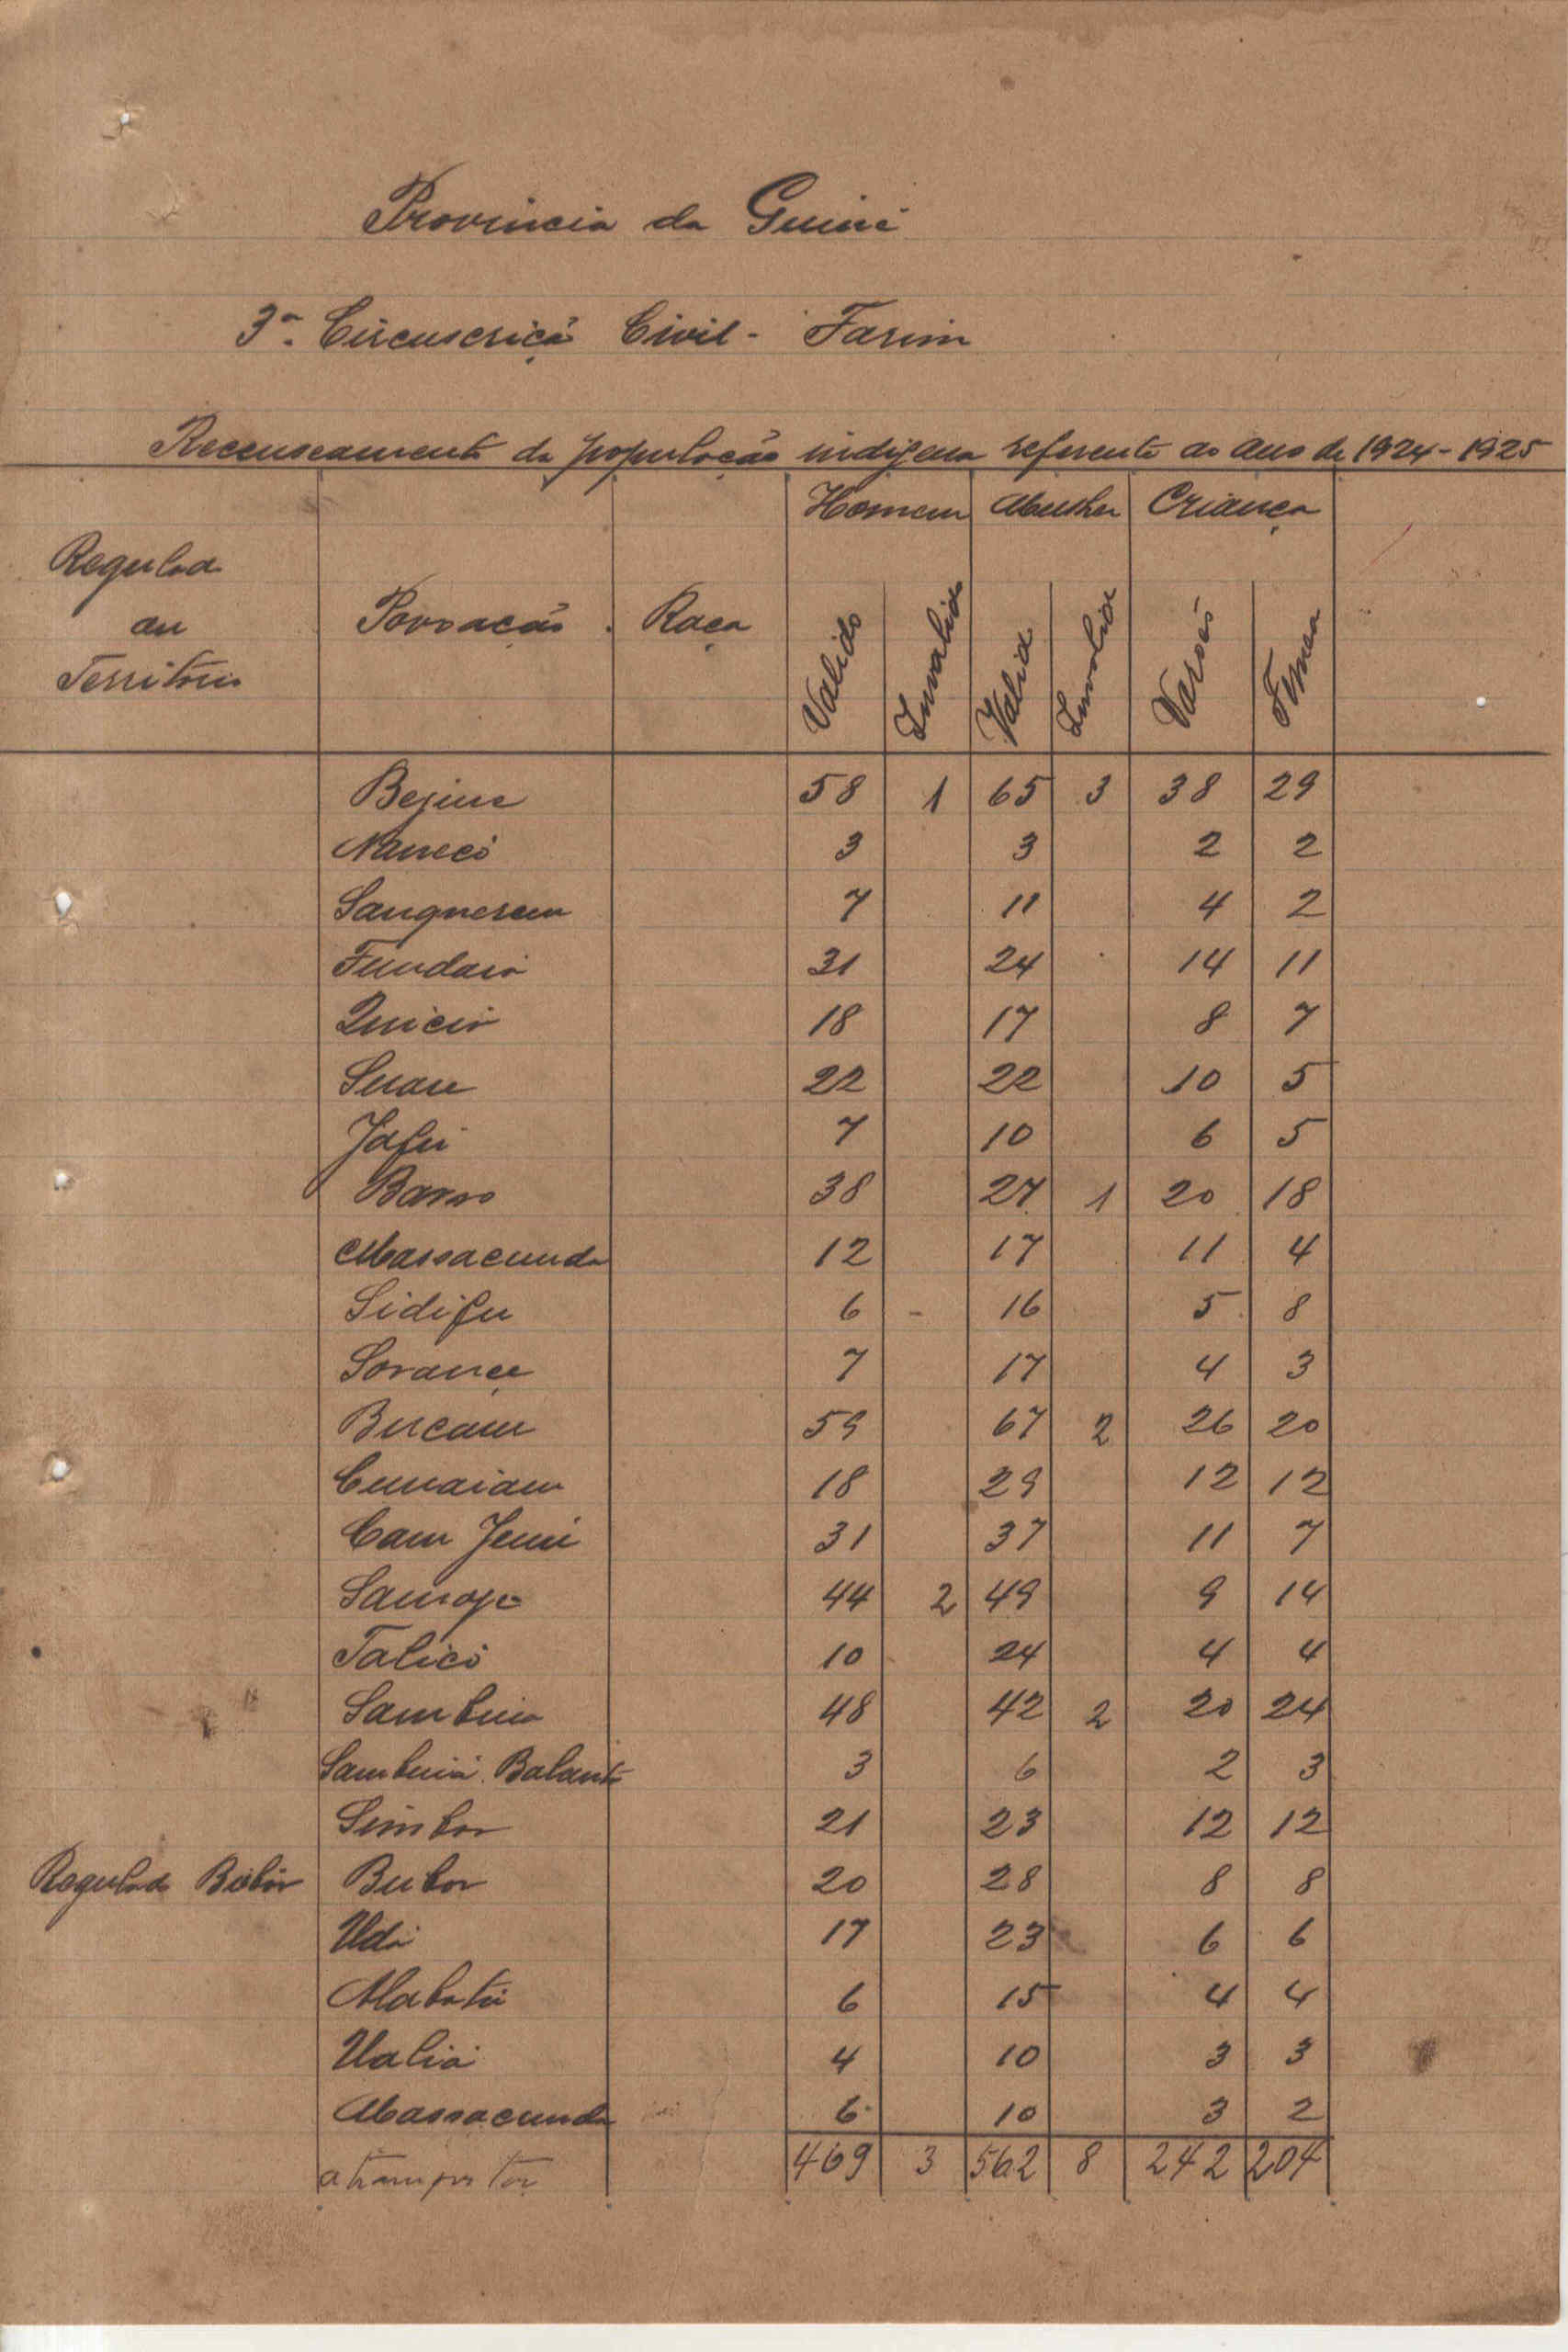 Provincia da Guiné
3ª Circuscriçã Civil - Farim
Recenseamento da população indigena referente ao ano de 1924-1925
Homem Mulher Criança
Regulad
ou
Territorio
Povoação Raça Valido Invalido Valid Invalid Varões Femea
Bejine 58 1 65 3 38 29
3 3 2 2
7 11 4 2
31 24 14 11
18 17 8 7
Suau 22 22 10 5
Jafu 7 10 6 5
Barro 38 27 1 20 18
Massacunda 12 17 11 4
Sidifu 6 - 16 5 8
7 17 4 3
Bucaur 59 67 2 26 20
18 29 12 12
31 37 11 7
44 2 49 9 14
Talicó 10 24 4 4
Sambuia 48 42 2 20 24
Sambuiá Balanta 3 6 2 3
Simbor 21 23 12 12
Regulado Bubôr Bubor 20 28 8 8
Udá 17 23 6 6
6 15 4 4
Ualiá 4 10 3 3
Massacunda 6 10 3 2
a transportar 469 3 562 8 242 204